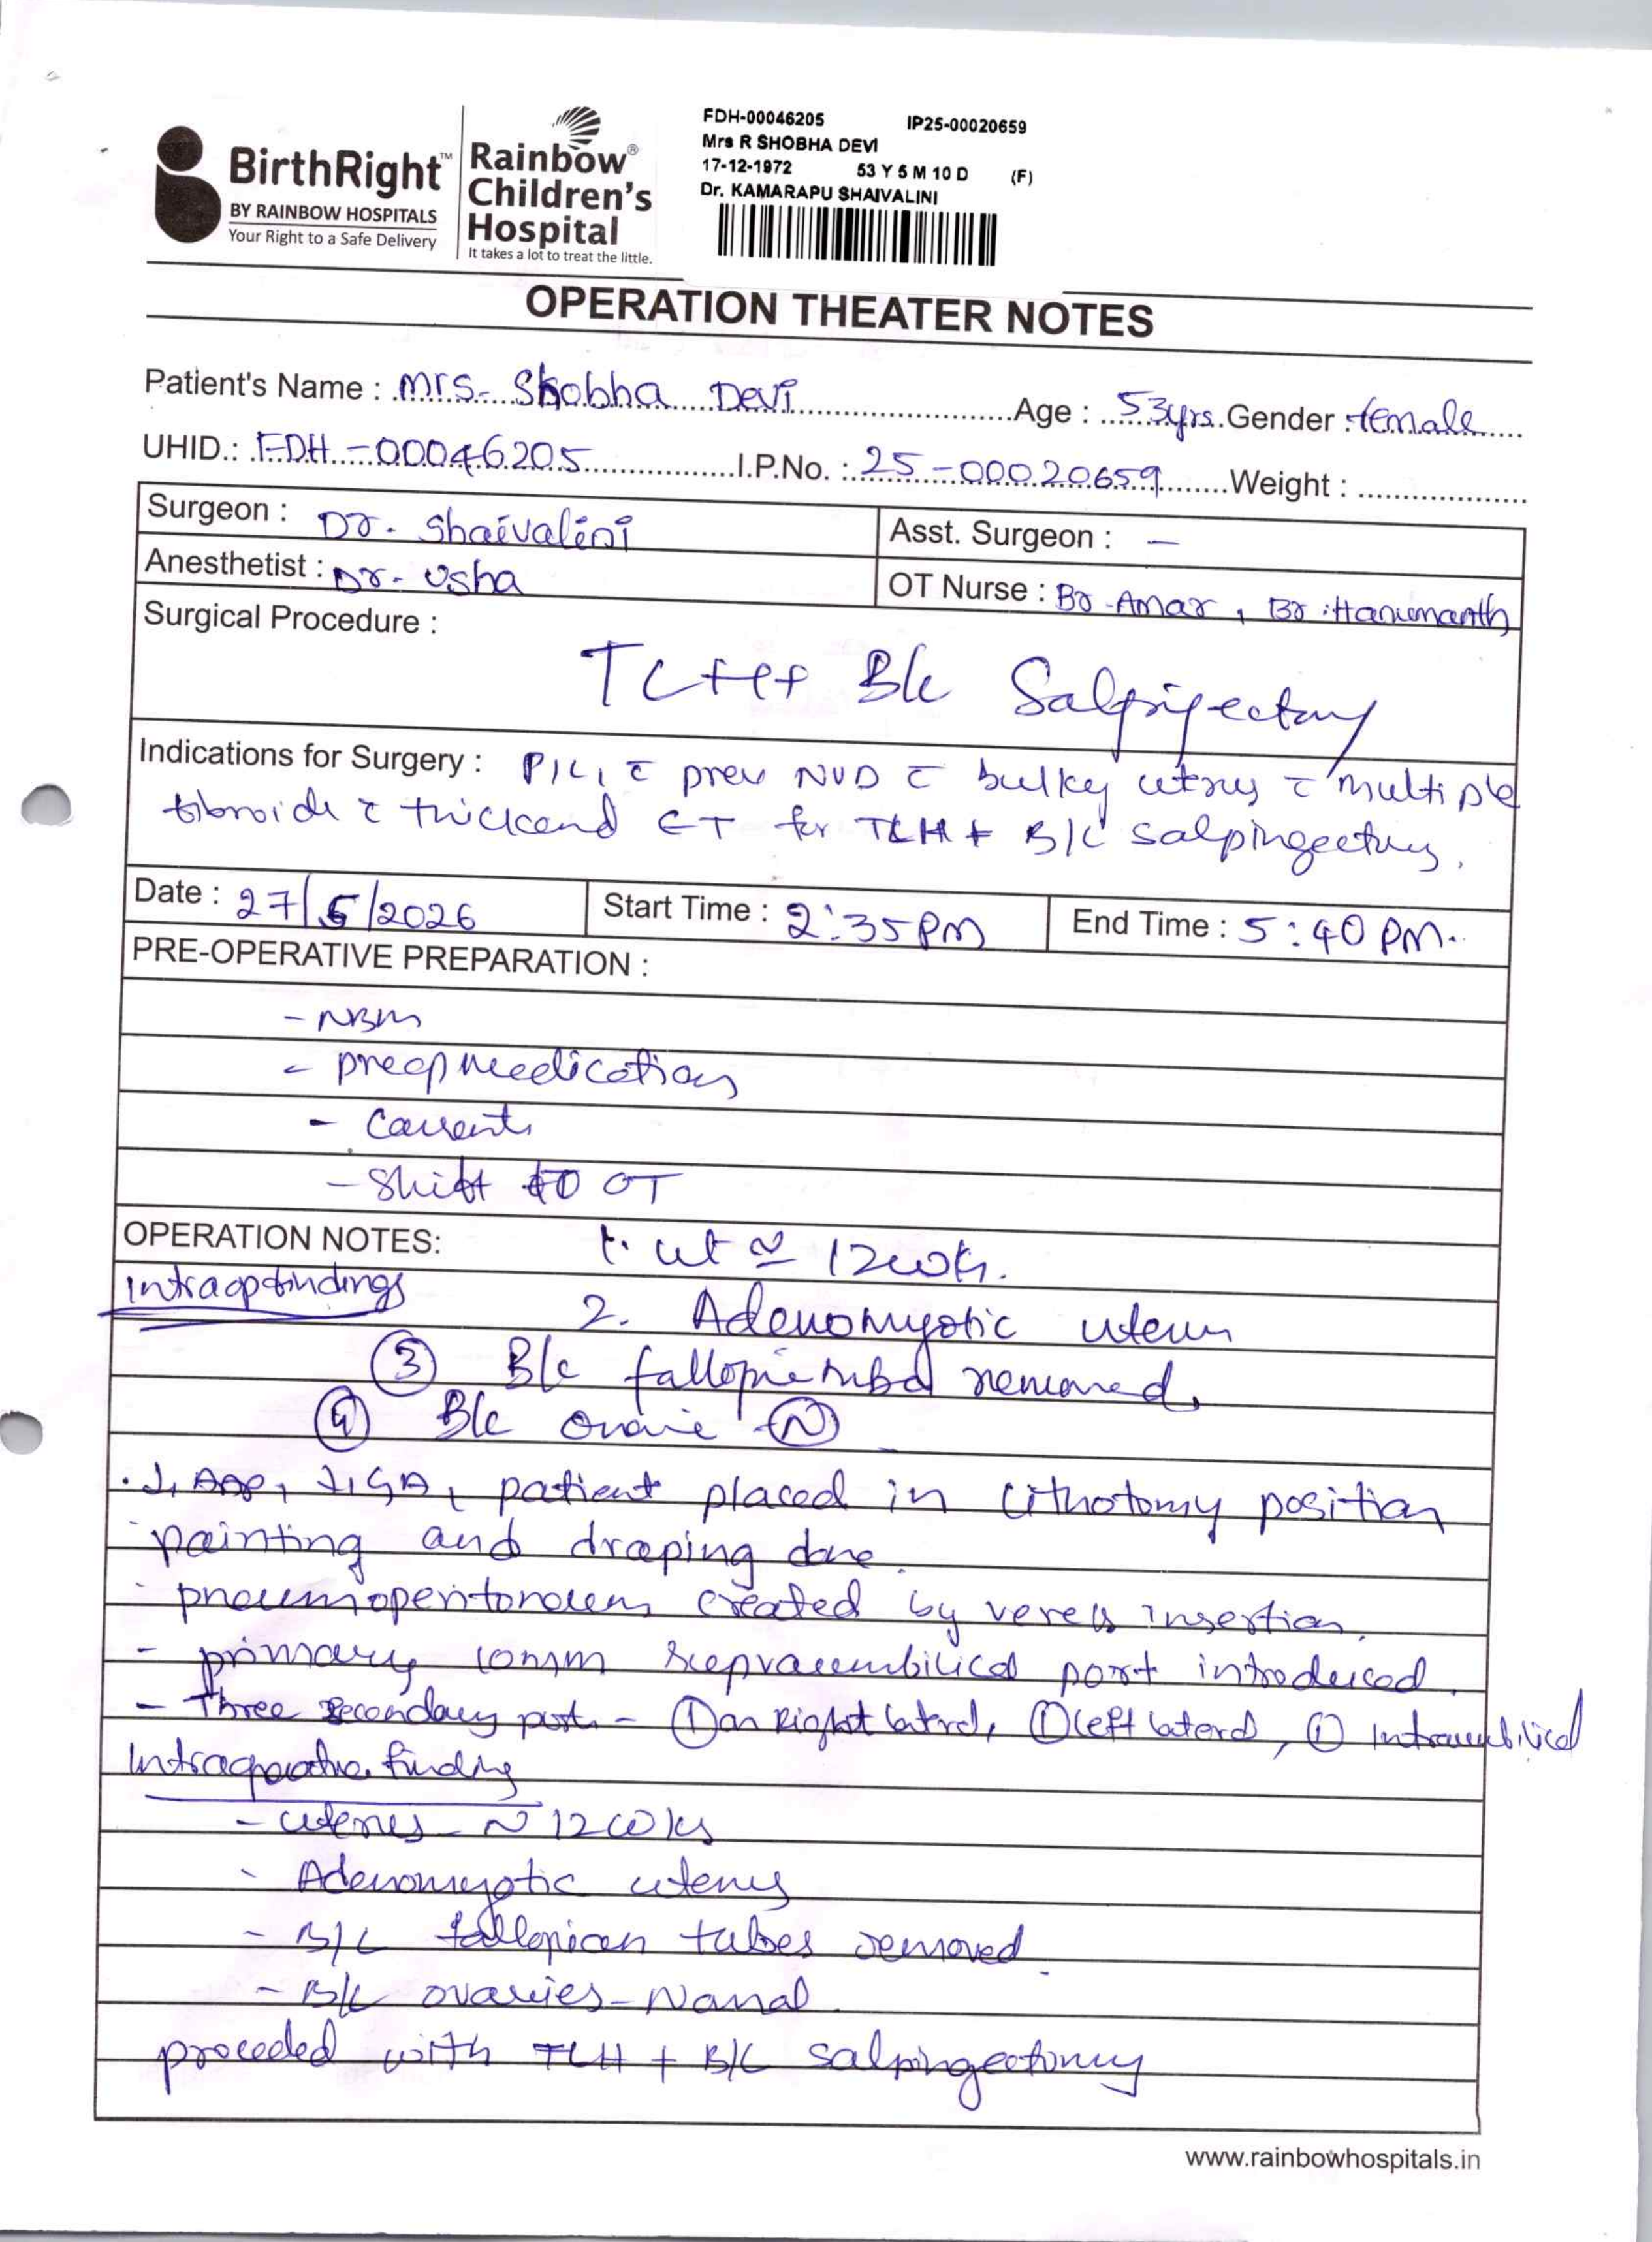 BirthRight™
BY RAINBOW HOSPITALS
Your Right to a Safe Delivery
Rainbow®
Children's
Hospital
It takes a lot to treat the little.
FDH-00046205 IP25-00020659
Mrs R SHOBHA DEVI
17-12-1972 53 Y 5 M 10 D (F)
Dr. KAMARAPU SHAIVALINI
OPERATION THEATER NOTES
Patient's Name : Mrs. Shobha Devi Age : 53yrs. Gender : female
UHID.: FDH-00046205 I.P.No. : 25-00020659 Weight :
Surgeon : Dr. Shaivalini Asst. Surgeon : —
Anesthetist : Dr. Usha OT Nurse : Br. Amar, Br. Hanumanth
Surgical Procedure :
TLH + B/L Salpingectomy
Indications for Surgery : P1L1 c̄ prev NVD c̄ bulky uterus c̄ multiple
fibroids c̄ thickend ET for TLH + B/L salpingectomy.
Date : 27/5/2026 Start Time : 2:35 PM End Time : 5:40 PM.
PRE-OPERATIVE PREPARATION :
- NBM
- preop medications
- Consent
- Shift to OT
OPERATION NOTES: 1. ut ≃ 12 wks.
Intraop findings
2. Adenomyotic uterus
③ B/L fallopian removed.
④ B/L ovaries (N)
patient placed in lithotomy position
painting and draping done.
- pneumoperitoneum created by veress insertion.
- primary 10mm supraumbilical port introduced.
- Three secondary ports - ① on Right lateral, ① left lateral, ①
Intraoperative finding
- uterus ~ 12 wks
- Adenomyotic uterus
- B/L fallopian tubes removed.
- B/L ovaries - Normal.
proceded with TLH + B/L salpingectomy
www.rainbowhospitals.in